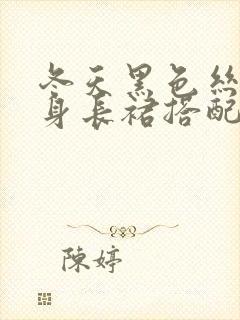 冬天黑色絲
身長裙搭配
陳婷